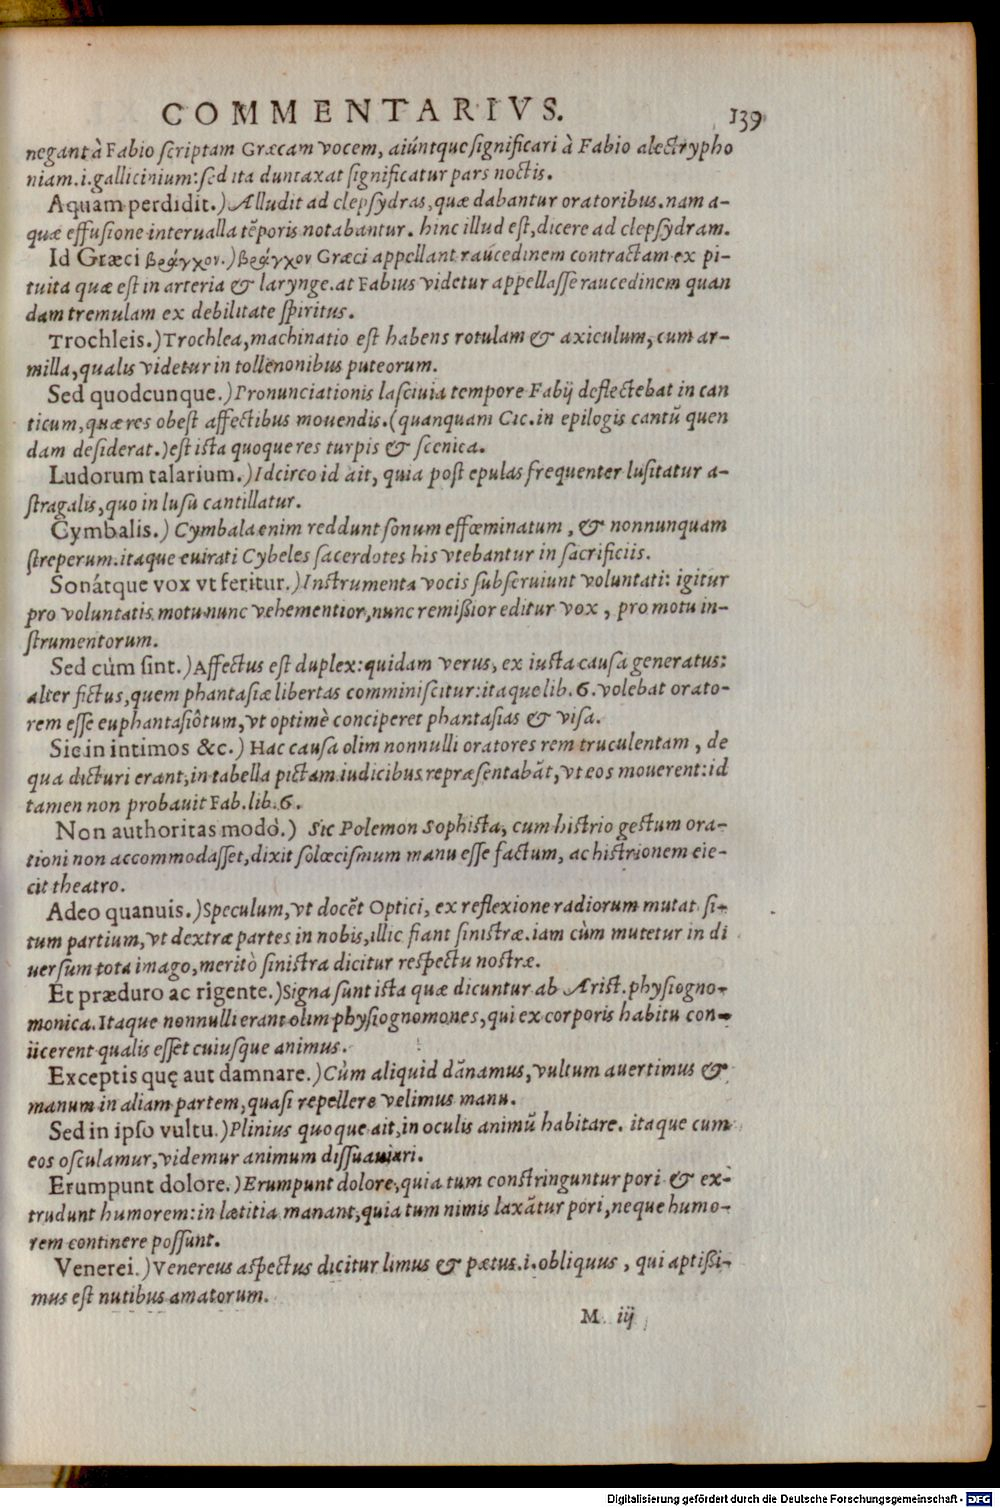 COMMENTARIVS. 139
negant à Fabio scriptam Græcam vocem, aiúntque significari à Fabio alectrypho
niam.i.gallicinium: sed ita duntaxat significatur pars noctis.
Aquam perdidit.) Alludit ad clepsydras, quæ dabantur oratoribus. nam a-
quæ effusione interualla tēporis notabantur. hinc illud est, dicere ad clepsydram.
Id Græci βράγχον.) βράγχον Græci appellant raúcedinem contractam ex pi-
tuita quæ est in arteria & larynge. at Fabius videtur appellasse raucedinem quan
dam tremulam ex debilitate spiritus.
Trochleis.) Trochlea, machinatio est habens rotulam & axiculum, cum ar-
milla, qualis videtur in tollenonibus puteorum.
Sed quodcunque.) Pronunciationis lasciuia tempore Fabij deflectebat in can
ticum, quæ res obest affectibus mouendis. (quanquam Cic. in epilogis cantū quen
dam desiderat.) est ista quoque res turpis & scenica.
Ludorum talarium.) Idcirco id ait, quia post epulas frequenter lusitatur a-
stragalis, quo in lusu cantillatur.
Cymbalis.) Cymbala enim reddunt sonum effœminatum, & nonnunquam
streperum. itaque euirati Cybeles sacerdotes his vtebantur in sacrificiis.
Sonátque vox vt feritur.) Instrumenta vocis subseruiunt voluntati: igitur
pro voluntatis motu nunc vehementior, nunc remißior editur vox, pro motu in-
strumentorum.
Sed cùm sint.) Affectus est duplex: quidam verus, ex iusta causa generatus:
alter fictus, quem phantasiæ libertas comminiscitur: itaque lib. 6. volebat orato-
rem esse euphantasiôtum, vt optimè conciperet phantasias & visa.
Sic in intimos &c.) Hac causa olim nonnulli oratores rem truculentam, de
qua dicturi erant, in tabella pictam iudicibus repræsentabāt, vt eos mouerent: id
tamen non probauit Fab. lib. 6.
Non authoritas modò.) Sic Polemon Sophista, cum histrio gestum ora-
tioni non accommodasset, dixit solœcismum manu esse factum, ac histrionem eie-
cit theatro.
Adeo quanuis.) Speculum, vt docēt Optici, ex reflexione radiorum mutat si-
tum partium, vt dextræ partes in nobis, illic fiant sinistræ. iam cùm mutetur in di
uersum tota imago, meritò sinistra dicitur respectu nostræ.
Et præduro ac rigente.) Signa sunt ista quæ dicuntur ab Arist. physiogno-
monica. Itaque nonnulli erant olim physiognomones, qui ex corporis habitu con-
iicerent qualis esset cuiusque animus.
Exceptis quę aut damnare.) Cùm aliquid dānamus, vultum auertimus &
manum in aliam partem, quasi repellere velimus manu.
Sed in ipso vultu.) Plinius quoque ait, in oculis animū habitare. itaque cum
eos osculamur, videmur animum dissuauiari.
Erumpunt dolore.) Erumpunt dolore, quia tum constringuntur pori & ex-
trudunt humorem: in lætitia manant, quia tum nimis laxātur pori, neque humo-
rem continere possunt.
Venerei.) Venereus aspectus dicitur limus & pætus.i.obliquus, qui aptißi-
mus est nutibus amatorum.
M iij
Digitalisierung gefördert durch die Deutsche Forschungsgemeinschaft - DFG